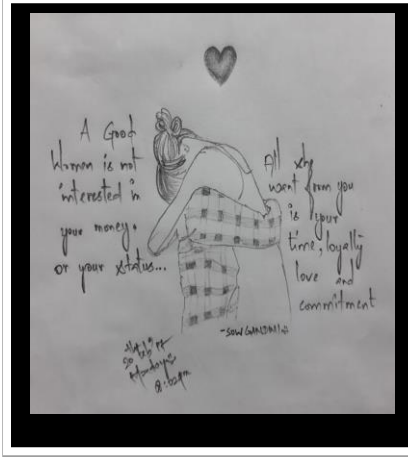 A Good
Women is not
interested in
your money.
or your status...
All she
want from you
is your
time, loyally
love and
commitment
-SOWGANDNI
Monday